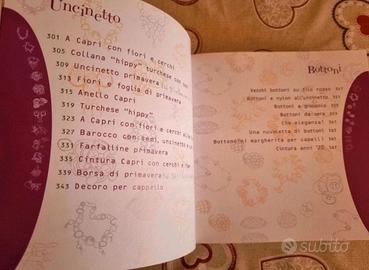 Uncinetto
301 A Capri con fiori e cerchi
305 Collana "hippy" turchese con
309 Uncinetto primavera
313 Fiori e foglie di primavera
315 Anello Capri
319 Turchese "hippy"
323 A Capri con fiori e cerchi
327 Barocco con semi, uncinetto
331 Farfalline primavera
335 Cintura Capri con cerchi e
339 Borsa di primavera
343 Decoro per cappello
Bottoni
Vecchi bottoni su filo rosso
Bottoni e nylon all'uncinetto
Bottoni a
Bottoni da sera
Che eleganza!
Una nuvoletta di bottoni
Bottoncini margherita per capelli
Cintura anni '20
subito